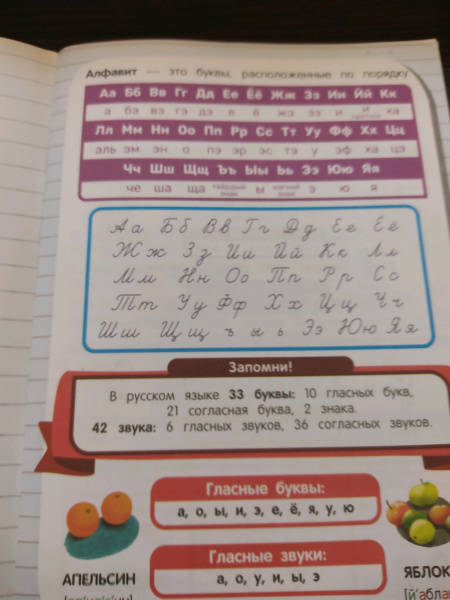 Алфавит — это буквы, расположенные по порядку
Аа Бб Вв Гг Дд Ее Ёё Жж Зз Ии Йй Кк
а бэ вэ гэ дэ е ё жэ зэ и и краткое ка
Лл Мм Нн Оо Пп Рр Сс Тт Уу Фф Хх Цц
эль эм эн о пэ эр эс тэ у эф ха цэ
Чч Шш Щщ Ъъ Ыы Ьь Ээ Юю Яя
че ша ща твёрдый знак ы мягкий знак э ю я
Аа Бб Вв Гг Дд Ее Ёё
Жж Зз Ии Йй Кк Лл
Мм Нн Оо Пп Рр Сс
Тт Уу Фф Хх Цц Чч
Шш Щщ ъ ы ь Ээ Юю Яя
Запомни!
В русском языке 33 буквы: 10 гласных букв,
21 согласная буква, 2 знака.
42 звука: 6 гласных звуков, 36 согласных звуков.
Гласные буквы:
а, о, ы, и, э, е, ё, я, у, ю
Гласные звуки:
а, о, у, и, ы, э
АПЕЛЬСИН
ЯБЛОК